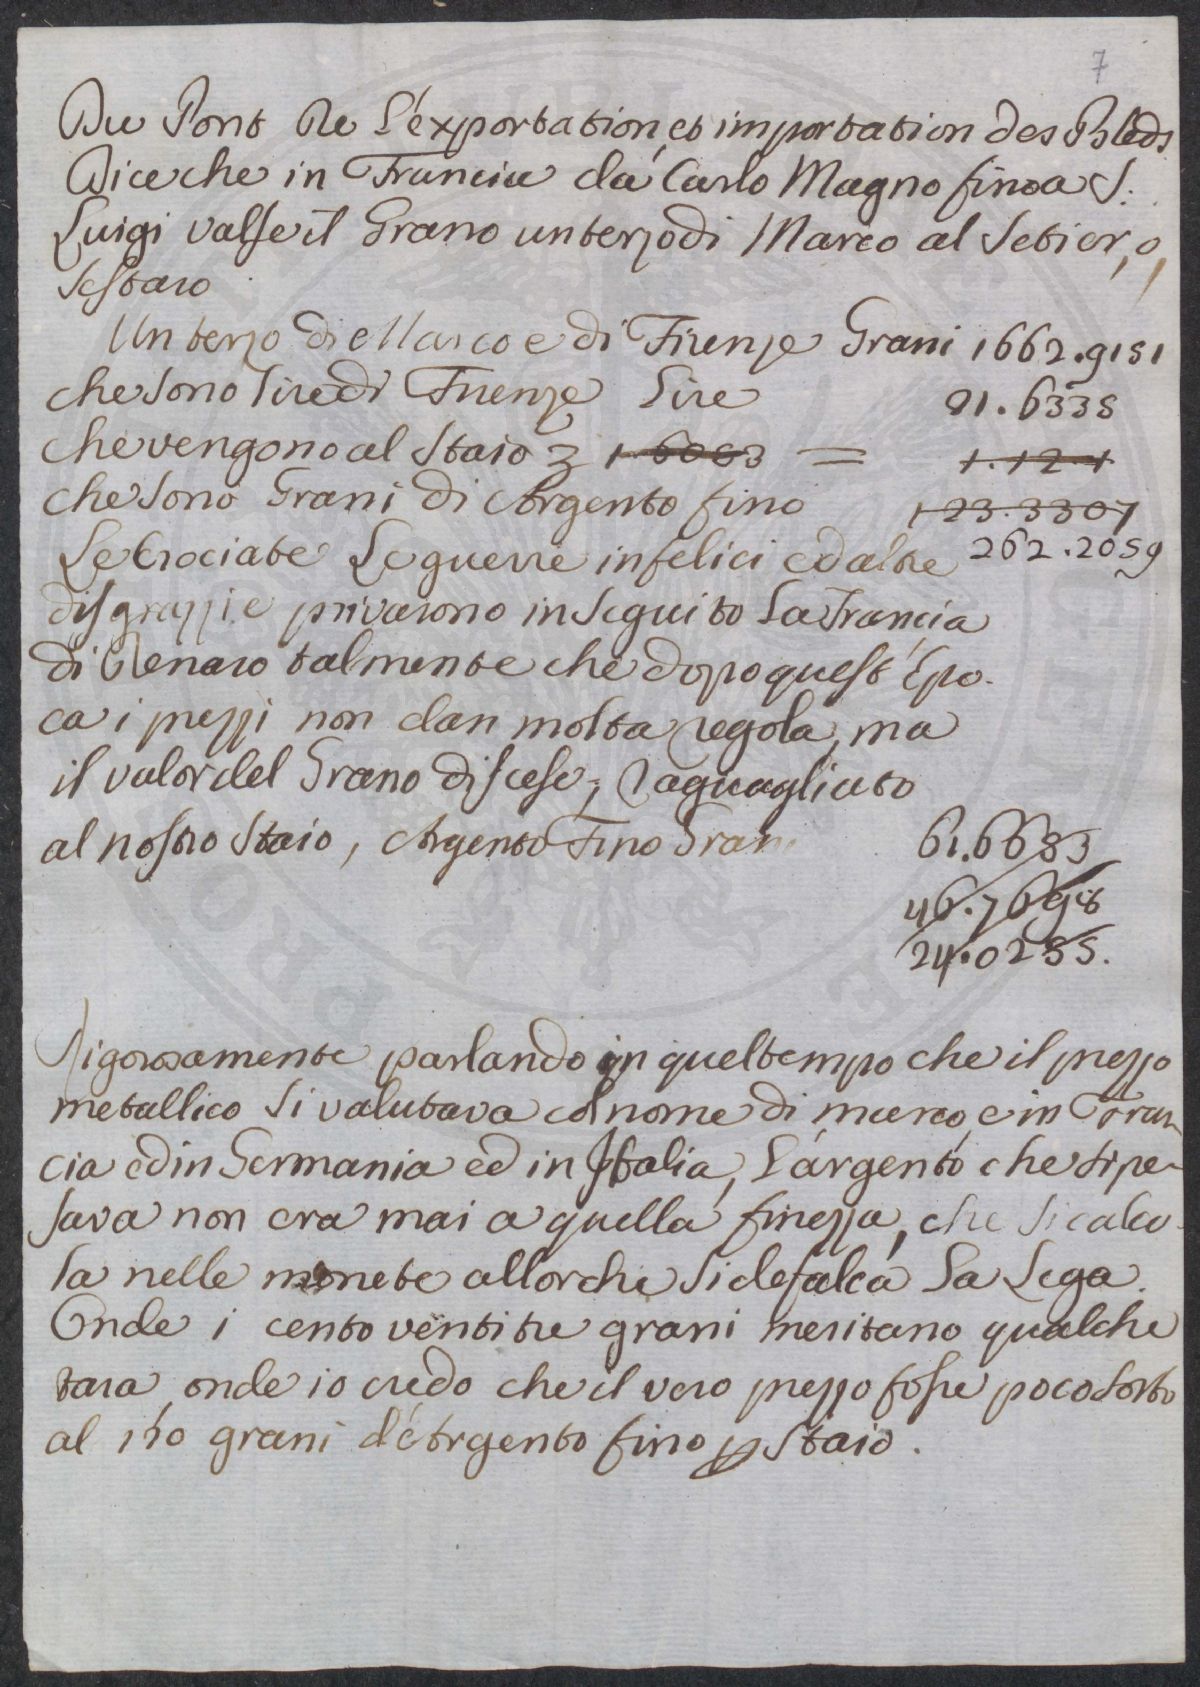 7
Du Pont De L'exportation, et importation des Bleds
Dice che in Francia da Carlo Magno fino a S.
Luigi valse il Grano un terzo di Marco al Setier, o
Sestaro
Un terzo di Marco e di Firenze Grani 1662.9151
che sono lire di Firenze Lire 21.6335
che vengono al Staio 1.6083 = 1.12.1
che sono Grani di Argento fino 123.3307
Le Crociate Le guerre infelici ed altre 262.2059
disgrazzie privarono in seguito La Francia
di Denaro talmente che dopo quest'Epo-
ca i prezzi non dan molta regola, ma
il valor del Grano discese, Raguagliato
al nostro Staio, Argento Fino Grani 61.6683
46.7698
24.0235.
Rigorosamente parlando in quel tempo che il prezzo
metallico si valutava col nome di marco, e in Fran-
cia ed in Germania ed in Italia, L'argento che si pe-
sava non era mai a quella finezza, che si calco-
la nelle monete allorche si defalca La Lega.
Onde i cento ventitre grani meritano qualche
tara, onde io credo che il vero prezzo fosse poco sotto
al 120 grani d'Argento fino p Staio.